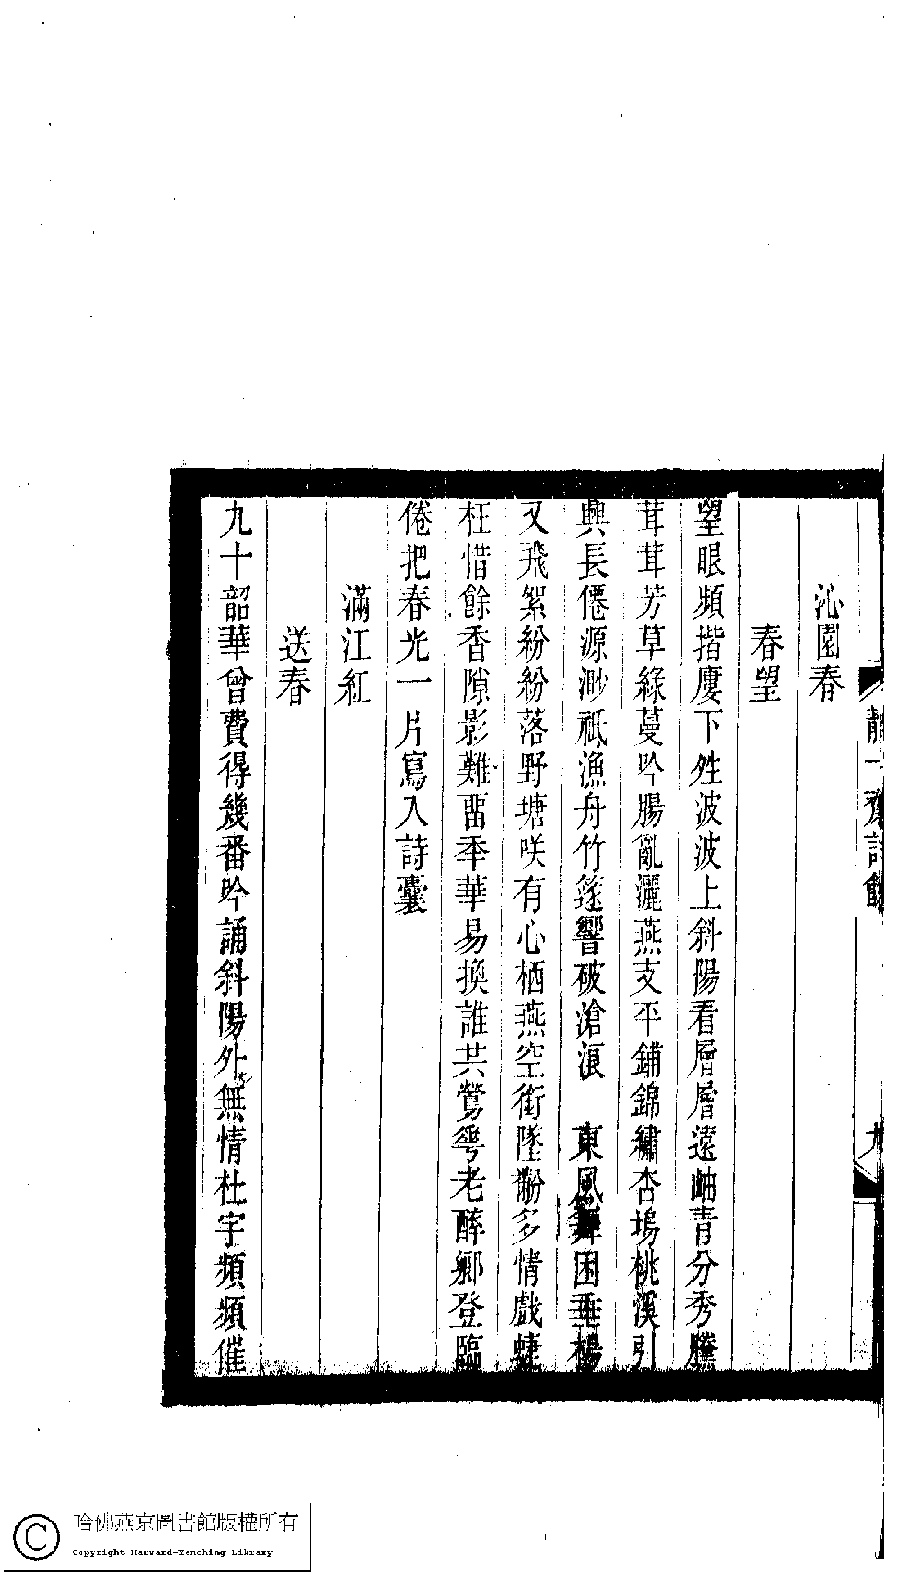 靜一齋詩餘
九
沁園春
春望
望眼頻揩廔下夝波波上斜陽看層層遠岫青分秀騰
茸茸芳草綠蔓吟腸亂灑燕支平鋪錦繡杏塢桃溪引
興長僊源渺祇漁舟竹篴響破滄浪　東風舞困垂楊
又飛絮紛紛落野塘咲有心栖燕空銜墜粉多情戲蜨
枉惜餘香隙影難畱秊華易換誰共鶯雩老醉鄉登臨
倦把春光一片寫入詩囊
滿江紅
送春
九十韶華曾費得幾番吟誦斜陽外無情杜宇頻頻催
哈佛燕京圖書館版權所有
Copyright Harvard-Yenching Library